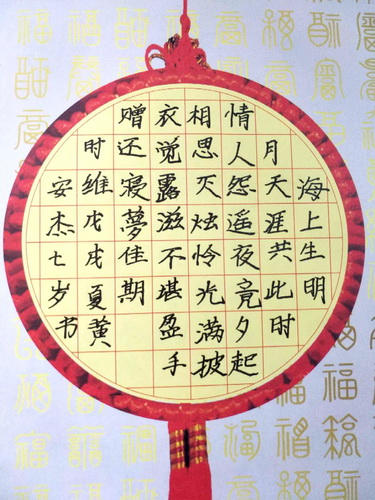 海上生明
月天涯共此时
情人怨遥夜竟夕起
相思灭烛怜光满披
衣觉露滋不堪盈手
赠还寝夢佳期
时维戊戌夏黄
安杰七岁书